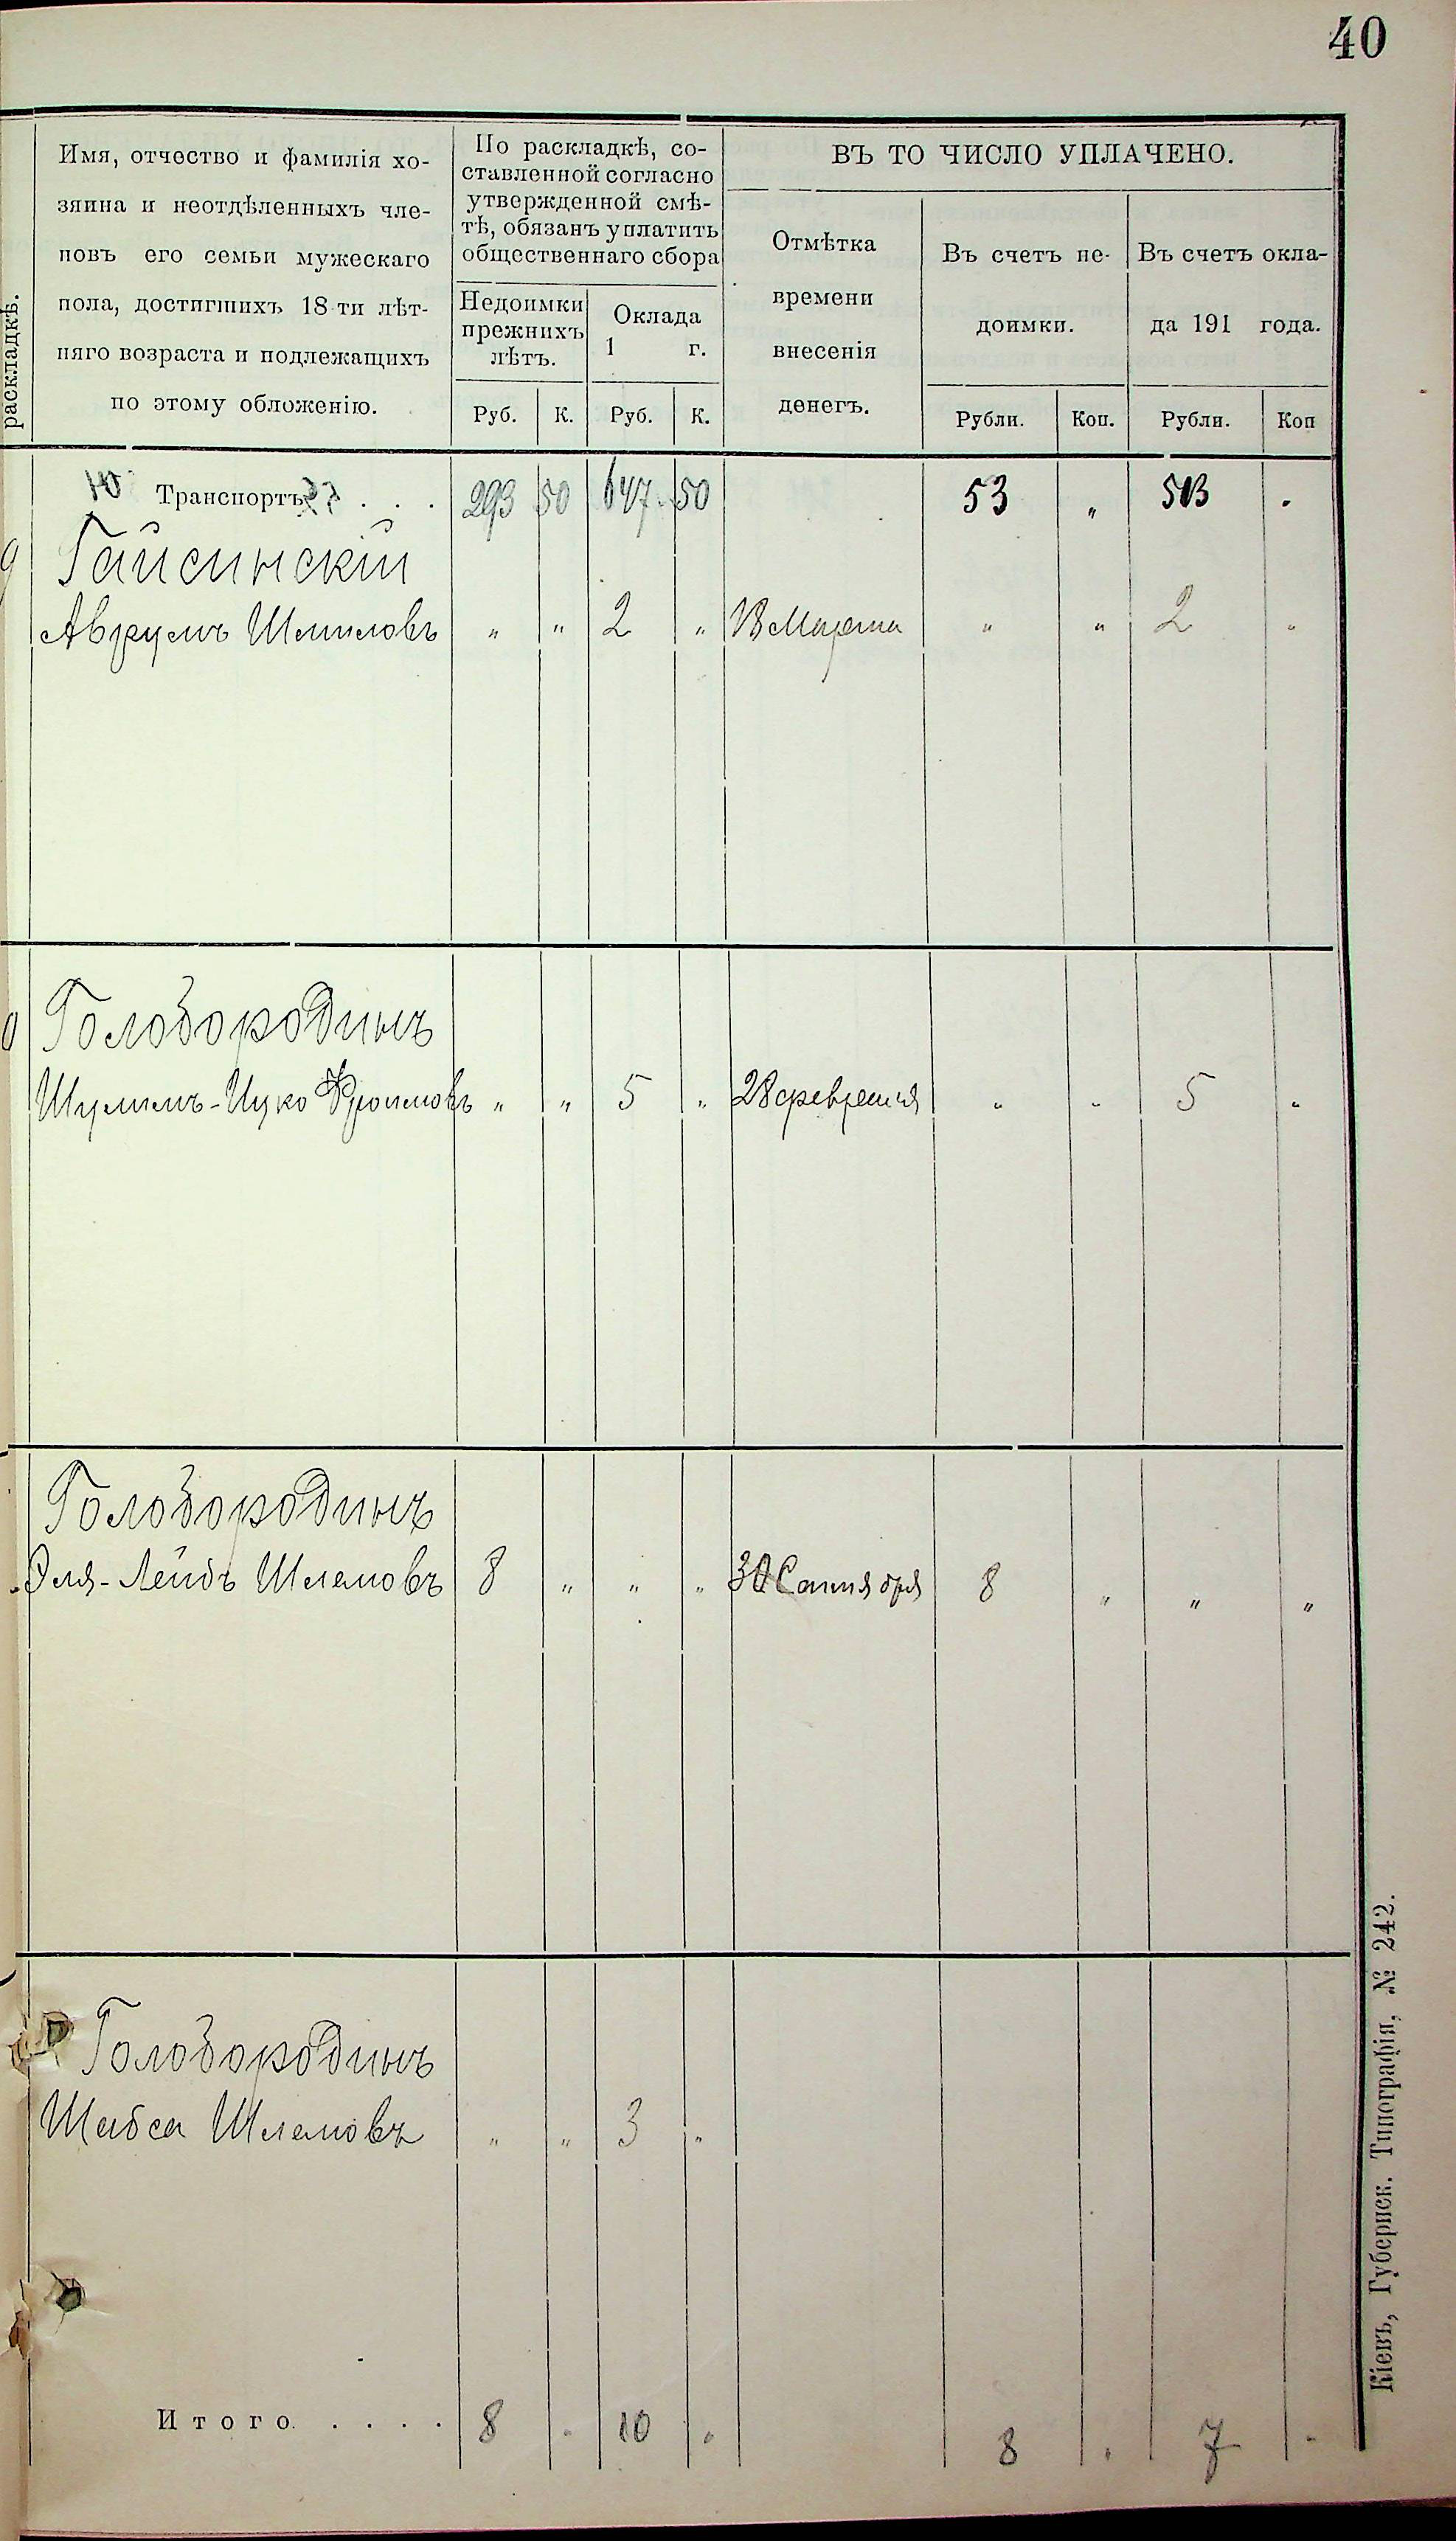 40
раскладкѣ.
Имя, отчество и фамилія хо-
зяина и неотдѣленныхъ чле-
новъ его семьи мужескаго
пола, достигшихъ 18-ти лѣт-
няго возраста и подлежащихъ
по этому обложенію.
По раскладкѣ, со-
ставленной согласно
утвержденной смѣ-
тѣ, обязанъ уплатить
общественнаго сбора
Недоимки
прежнихъ
лѣтъ.
Оклада
1 г.
Руб. К. Руб. К.
ВЪ ТО ЧИСЛО УПЛАЧЕНО.
Отмѣтка
времени
внесенія
денегъ.
Въ счетъ не-
доимки.
Въ счетъ окла-
да 191 года.
Рубли. Коп. Рубли. Коп
Транспортъ . . . 293 50 647 50 53 „ 513 .
Гайсинскій
Аврумъ Шмиловъ „ „ 2 „ 13 Марта „ „ 2 „
Голобородинъ
Шулимъ-Ицко Фроимовъ „ „ 5 „ 28 февраля „ „ 5 „
Голобородинъ
Эля-Лейбъ Шлемовъ 8 „ „ „ 30 Сентября 8 „ „ „
Голобородинъ
Шабса Шлемовъ „ „ 3 „
Итого. . . . . 8 . 10 „ 8 . 7 .
Кіевъ, Губернск. Типографія, № 242.